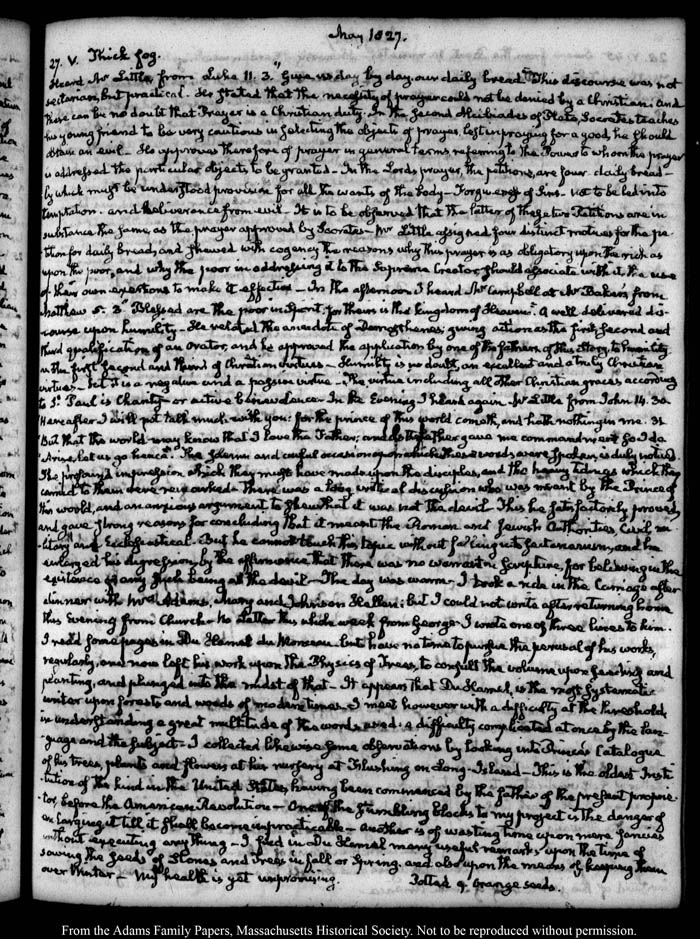 May 1827.
27. V. Thick fog.
Heard Mr Little, from Luke 11. 3. "Give us day by day our daily bread." This discourse was not
sectarian, but practical. He stated that the necessity of prayer could not be denied by a Christian; and
there can be no doubt that Prayer is a Christian duty. In the second Alcibiades of Plato, Socrates teaches
his young friend to be very cautious in selecting the objects of prayer, lest in praying for a good, he should
obtain an evil. He approves therefore of prayer in general terms referring to the Power to whom the prayer
is addressed the particular objects to be granted — In the Lords prayer, the petitions, are four. daily bread —
by which must be understood provision for all the wants of the body — Forgiveness of Sins — not to be led into
temptation — and deliverance from evil — It is to be observed that the latter of these two Petitions are in
substance the same, as the prayer approved by Socrates — Mr Little assigned four distinct motives for the pe-
tition for daily bread, and shewed with cogency the reasons why this prayer is as obligatory upon the rich as
upon the poor, and why the poor in addressing it to the Supreme Creator should associate with it the use
of their own exertions to make it effective — In the afternoon I heard Mr Campbell at Mr Baker's from
Matthew 5. 3. "Blessed are the poor in Spirit, for theirs is the kingdom of Heaven." A well delivered dis-
course upon humility — He related the anecdote of Demosthenes; giving action as the first, second and
third qualification of an orator, and he approved the application by one of the fathers, of this Story to humility
as the first second and third of Christian virtues — Humility is no doubt, an excellent and a truly Christian
virtue — Yet it is a negative and a passive virtue — The virtue including all other Christian graces according
to St. Paul is Charity — or active benevolence — In the Evening I heard again Mr Little from John 14. 30.
Hereafter I will not talk much with you: for the prince of this world cometh, and hath nothing in me. 31
But that the world may know that I love the Father; and as the father gave me commandment so I do
Arise, let us go hence." The solemn and awful occasion upon which these words were spoken, is duly noticed.
The profound impression which they must have made upon the disciples, and the heavy tidings which they
carried to them were remarked — There was a long critical discussion who was meant by the Prince of
this world, and an anxious argument to shew that it was not the devil. This he satisfactorily proved,
and gave strong reasons for concluding that it meant the Roman and Jewish Authorities, Civil Mi-
litary and Ecclesiastical — But he cannot touch this topic without falling into sectarianism, and he
enlarged his digression, by the affirmance that there was no warrant in Scripture, for believing in the
existence of any such being as the devil — The day was warm — I took a ride in the Carriage after
dinner with Mrs Adams, Mary and Johnson Hellen; but I could not write after returning home
this Evening from Church — No letter this whole week from George — I wrote one of three lines to him.
I read some pages in Du Hamel du Monceau — but have no time to pursue the perusal of his works,
regularly, and now left his work upon the Physics of Trees, to consult the volume upon seeding and
planting, and plunged into the midst of that — It appears that Du Hamel, is the most systematic
writer upon forests and woods of modern times. I meet however with a difficulty at the threshold,
in understanding a great multitude of the words used: a difficulty complicated at once by the lan-
guage and the subject — I collected likewise some observations by looking into Prince's Catalogue
of his trees, plants and flowers at his nursery at Flushing on Long-Island — This is the oldest Insti-
tution of the kind in the United States, having been commenced by the father of the present proprie-
tor, before the American Revolution — One of the stumbling blocks to my project is the danger of
enlarging it till it shall become impracticable — another is of wasting time upon mere fancies
without executing any thing — I find in Du Hamel many useful remarks upon the time of
sowing the seeds of Stones and Trees in fall or Spring. and also upon the means of keeping them
over Winter — My health is yet unpromising. Potted 9 orange seeds.
From the Adams Family Papers, Massachusetts Historical Society. Not to be reproduced without permission.